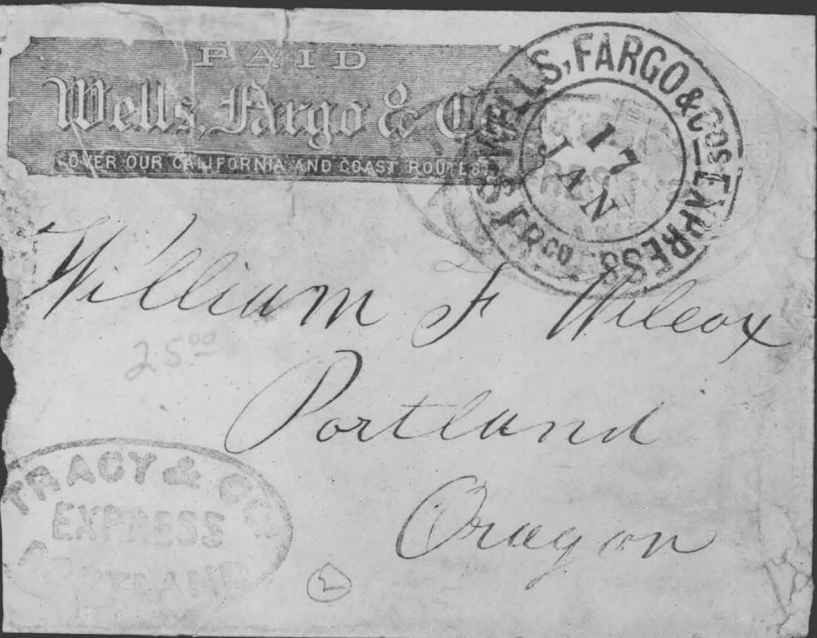 PAID
Wells, Fargo & Co
OVER OUR CALIFORNIA AND COAST ROUTES
WELLS, FARGO & COS EXPRESS
17
JAN
S. FR CO.
William F Wilcox
25 00
Portland
Oragon
TRACY & CO
EXPRESS
PORTLAND
2